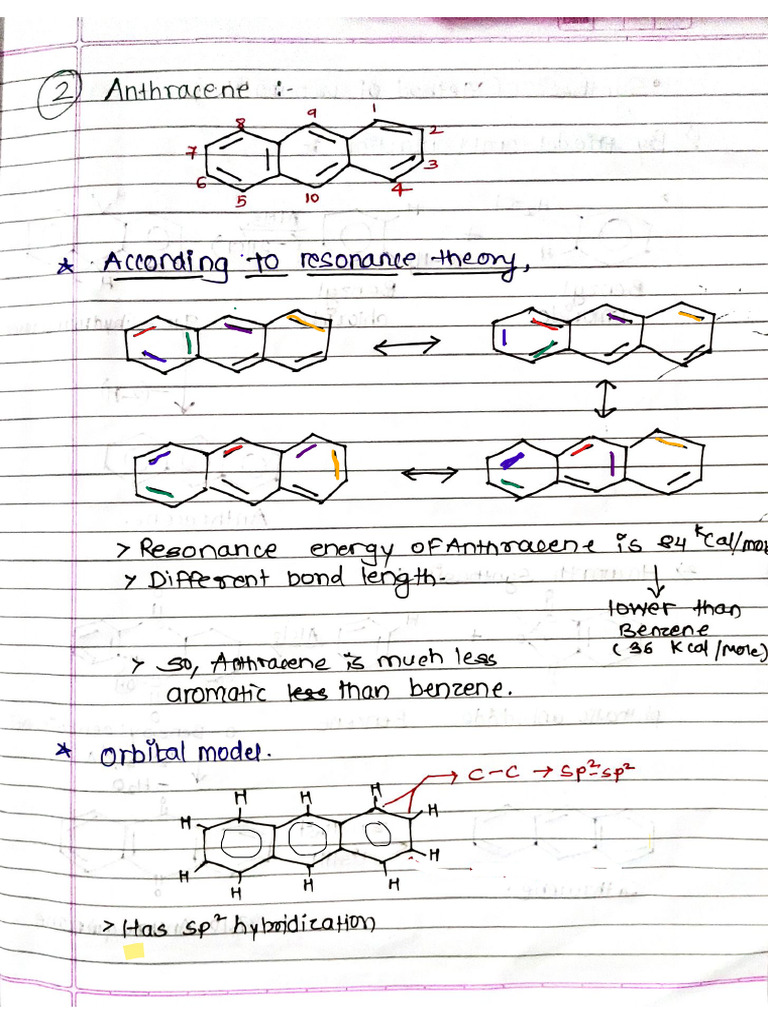 2 Anthracene :-
8 9 1
7 2
6 3
5 10 4
* According to resonance theory,
> Resonance energy of Anthracene is 84 Kcal/mo
> Different bond length.
lower than
Benzene
(36 Kcal/mole)
> so, Anthracene is much less
aromatic less than benzene.
* Orbital model.
C-C → sp²-sp²
H H H
H H
H H
H H H
> Has sp² hybridization